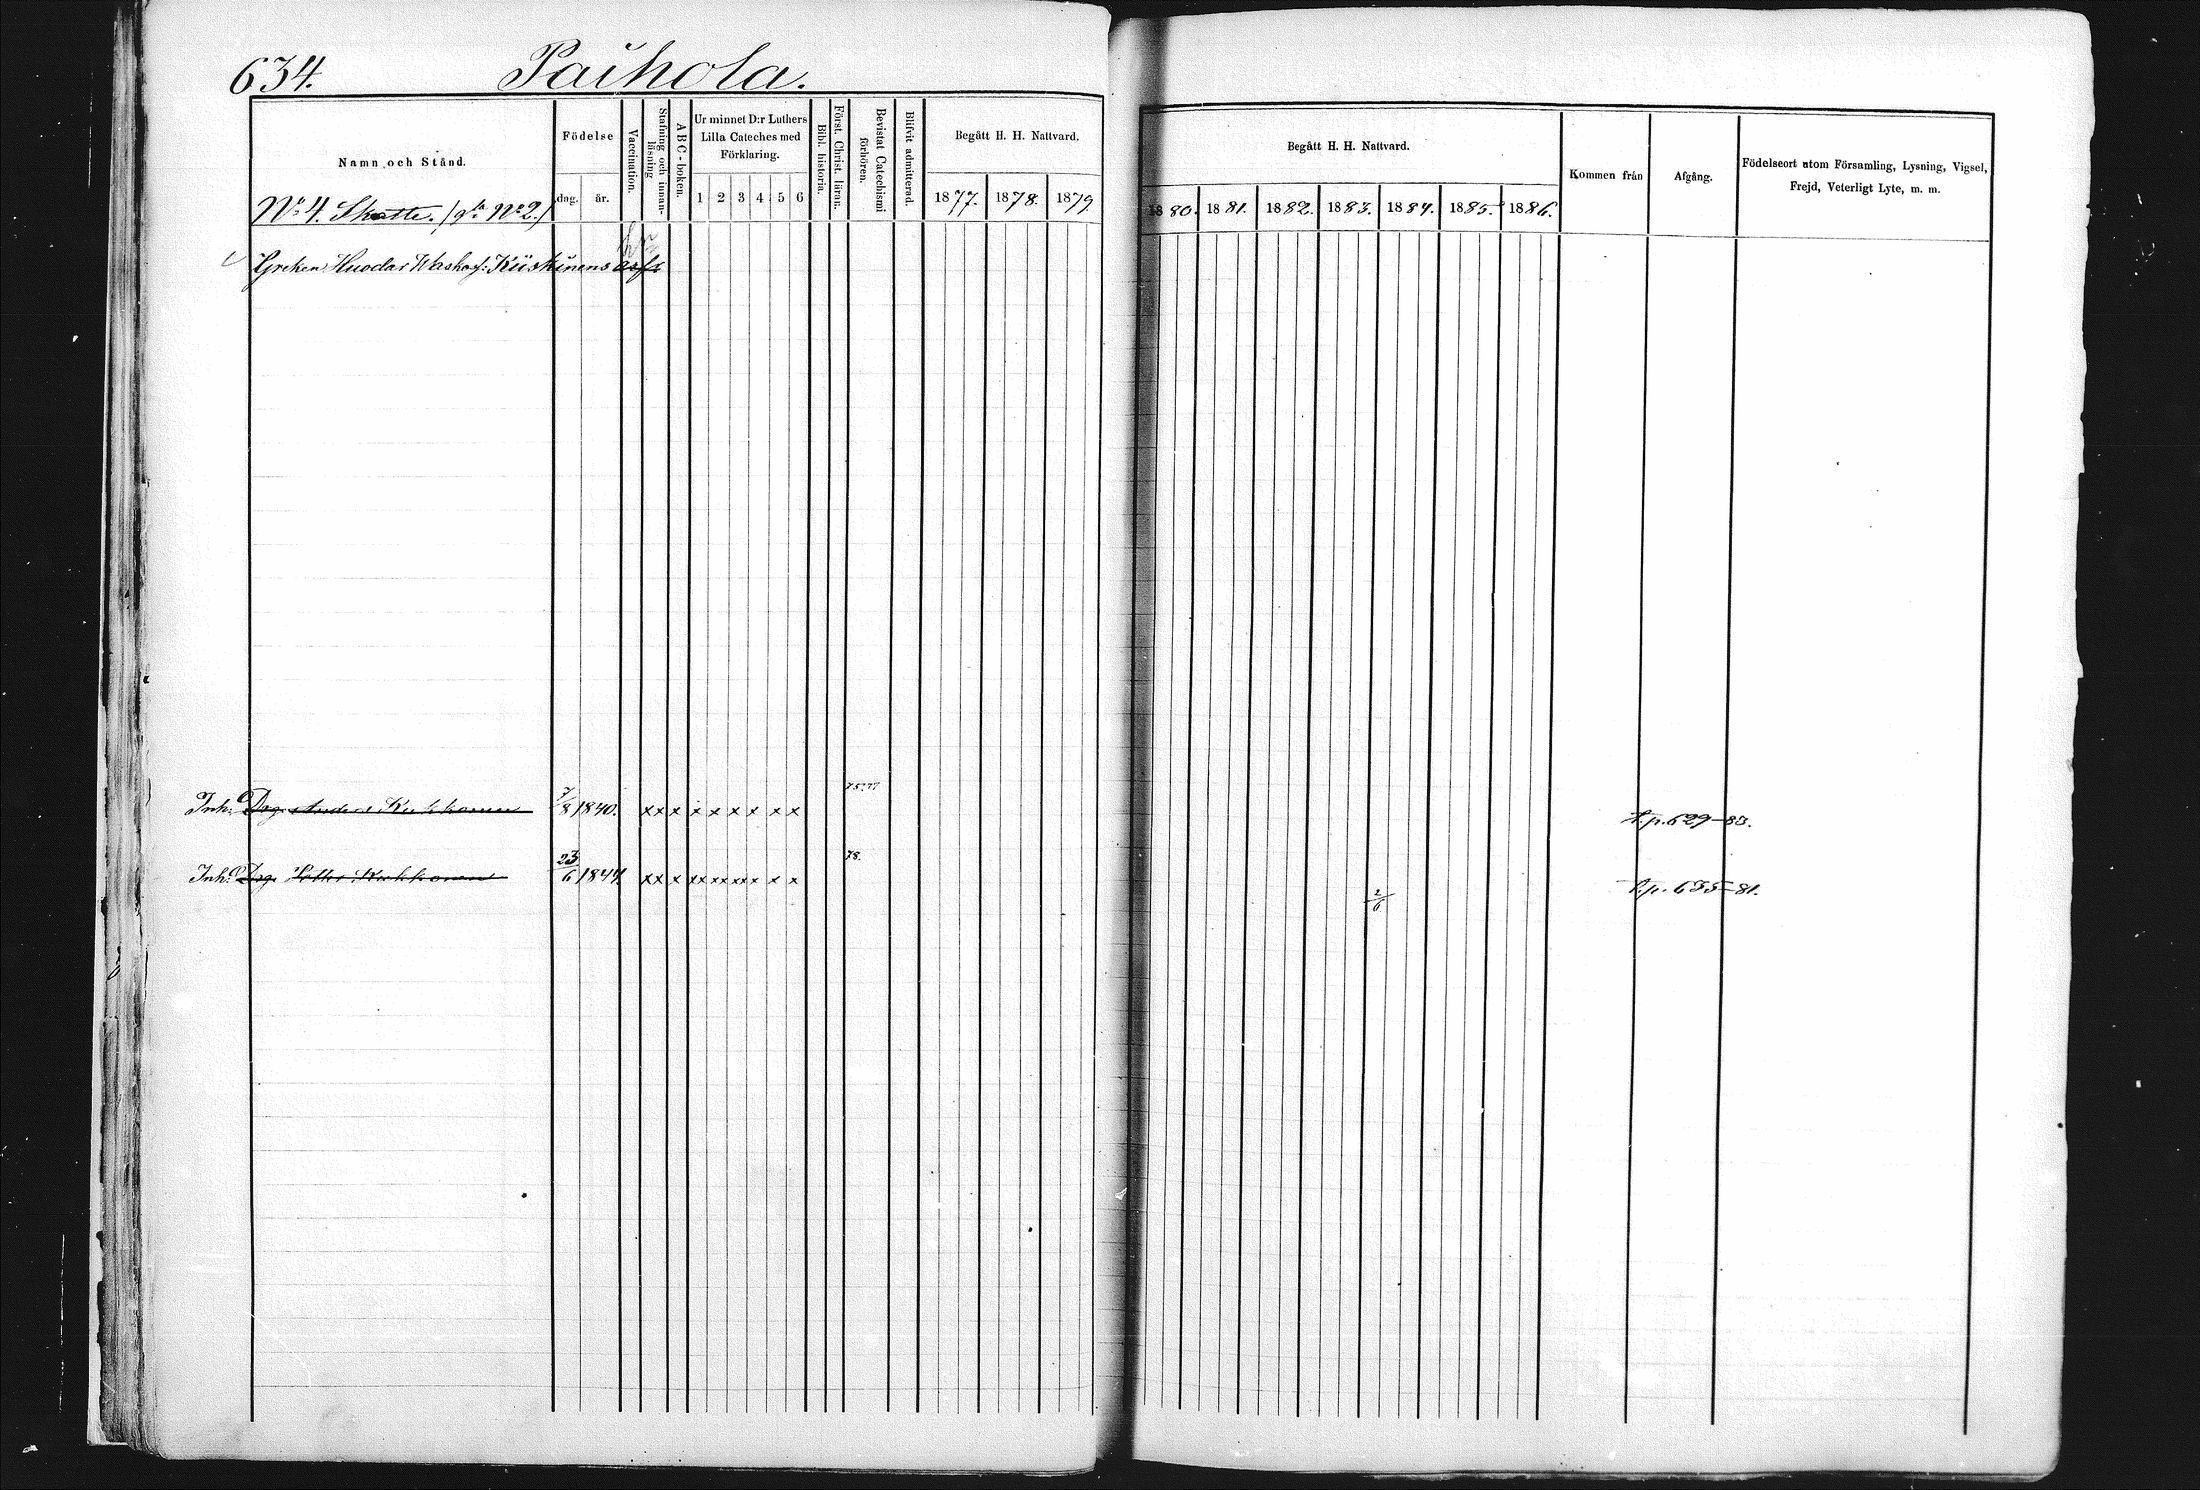 634. Paihola.
Namn och Stånd.
Födelse
dag. år.
Vaccination.
Stafning och innanläsning
ABC-boken.
Ur minnet D:r Luthers
Lilla Cateches med
Förklaring.
1 2 3 4 5 6
Bibl. historia.
Först. Christ. läran.
Bevistat Catechismi förhören.
Blifvit admitterad.
Begått H. H. Nattvard.
1877. 1878. 1879.
Begått H. H. Nattvard.
1880. 1881. 1882. 1883. 1884. 1885. 1886.
Kommen från
Afgång.
Födelseort utom Församling, Lysning, Vigsel,
Frejd, Veterligt Lyte, m. m.
No 4. Skatte. /gla No 2./
Greken Huodar Kiiskinens
75 77
Inh. Drg. Anders Kukkonen 7/8 1840. x x x x x x x x x t.p. 629–83.
78.
Inh. Drg. Kukkonen 23/6 1844. x x x xx xx xx x x x 2/6 t.p. 635–81.